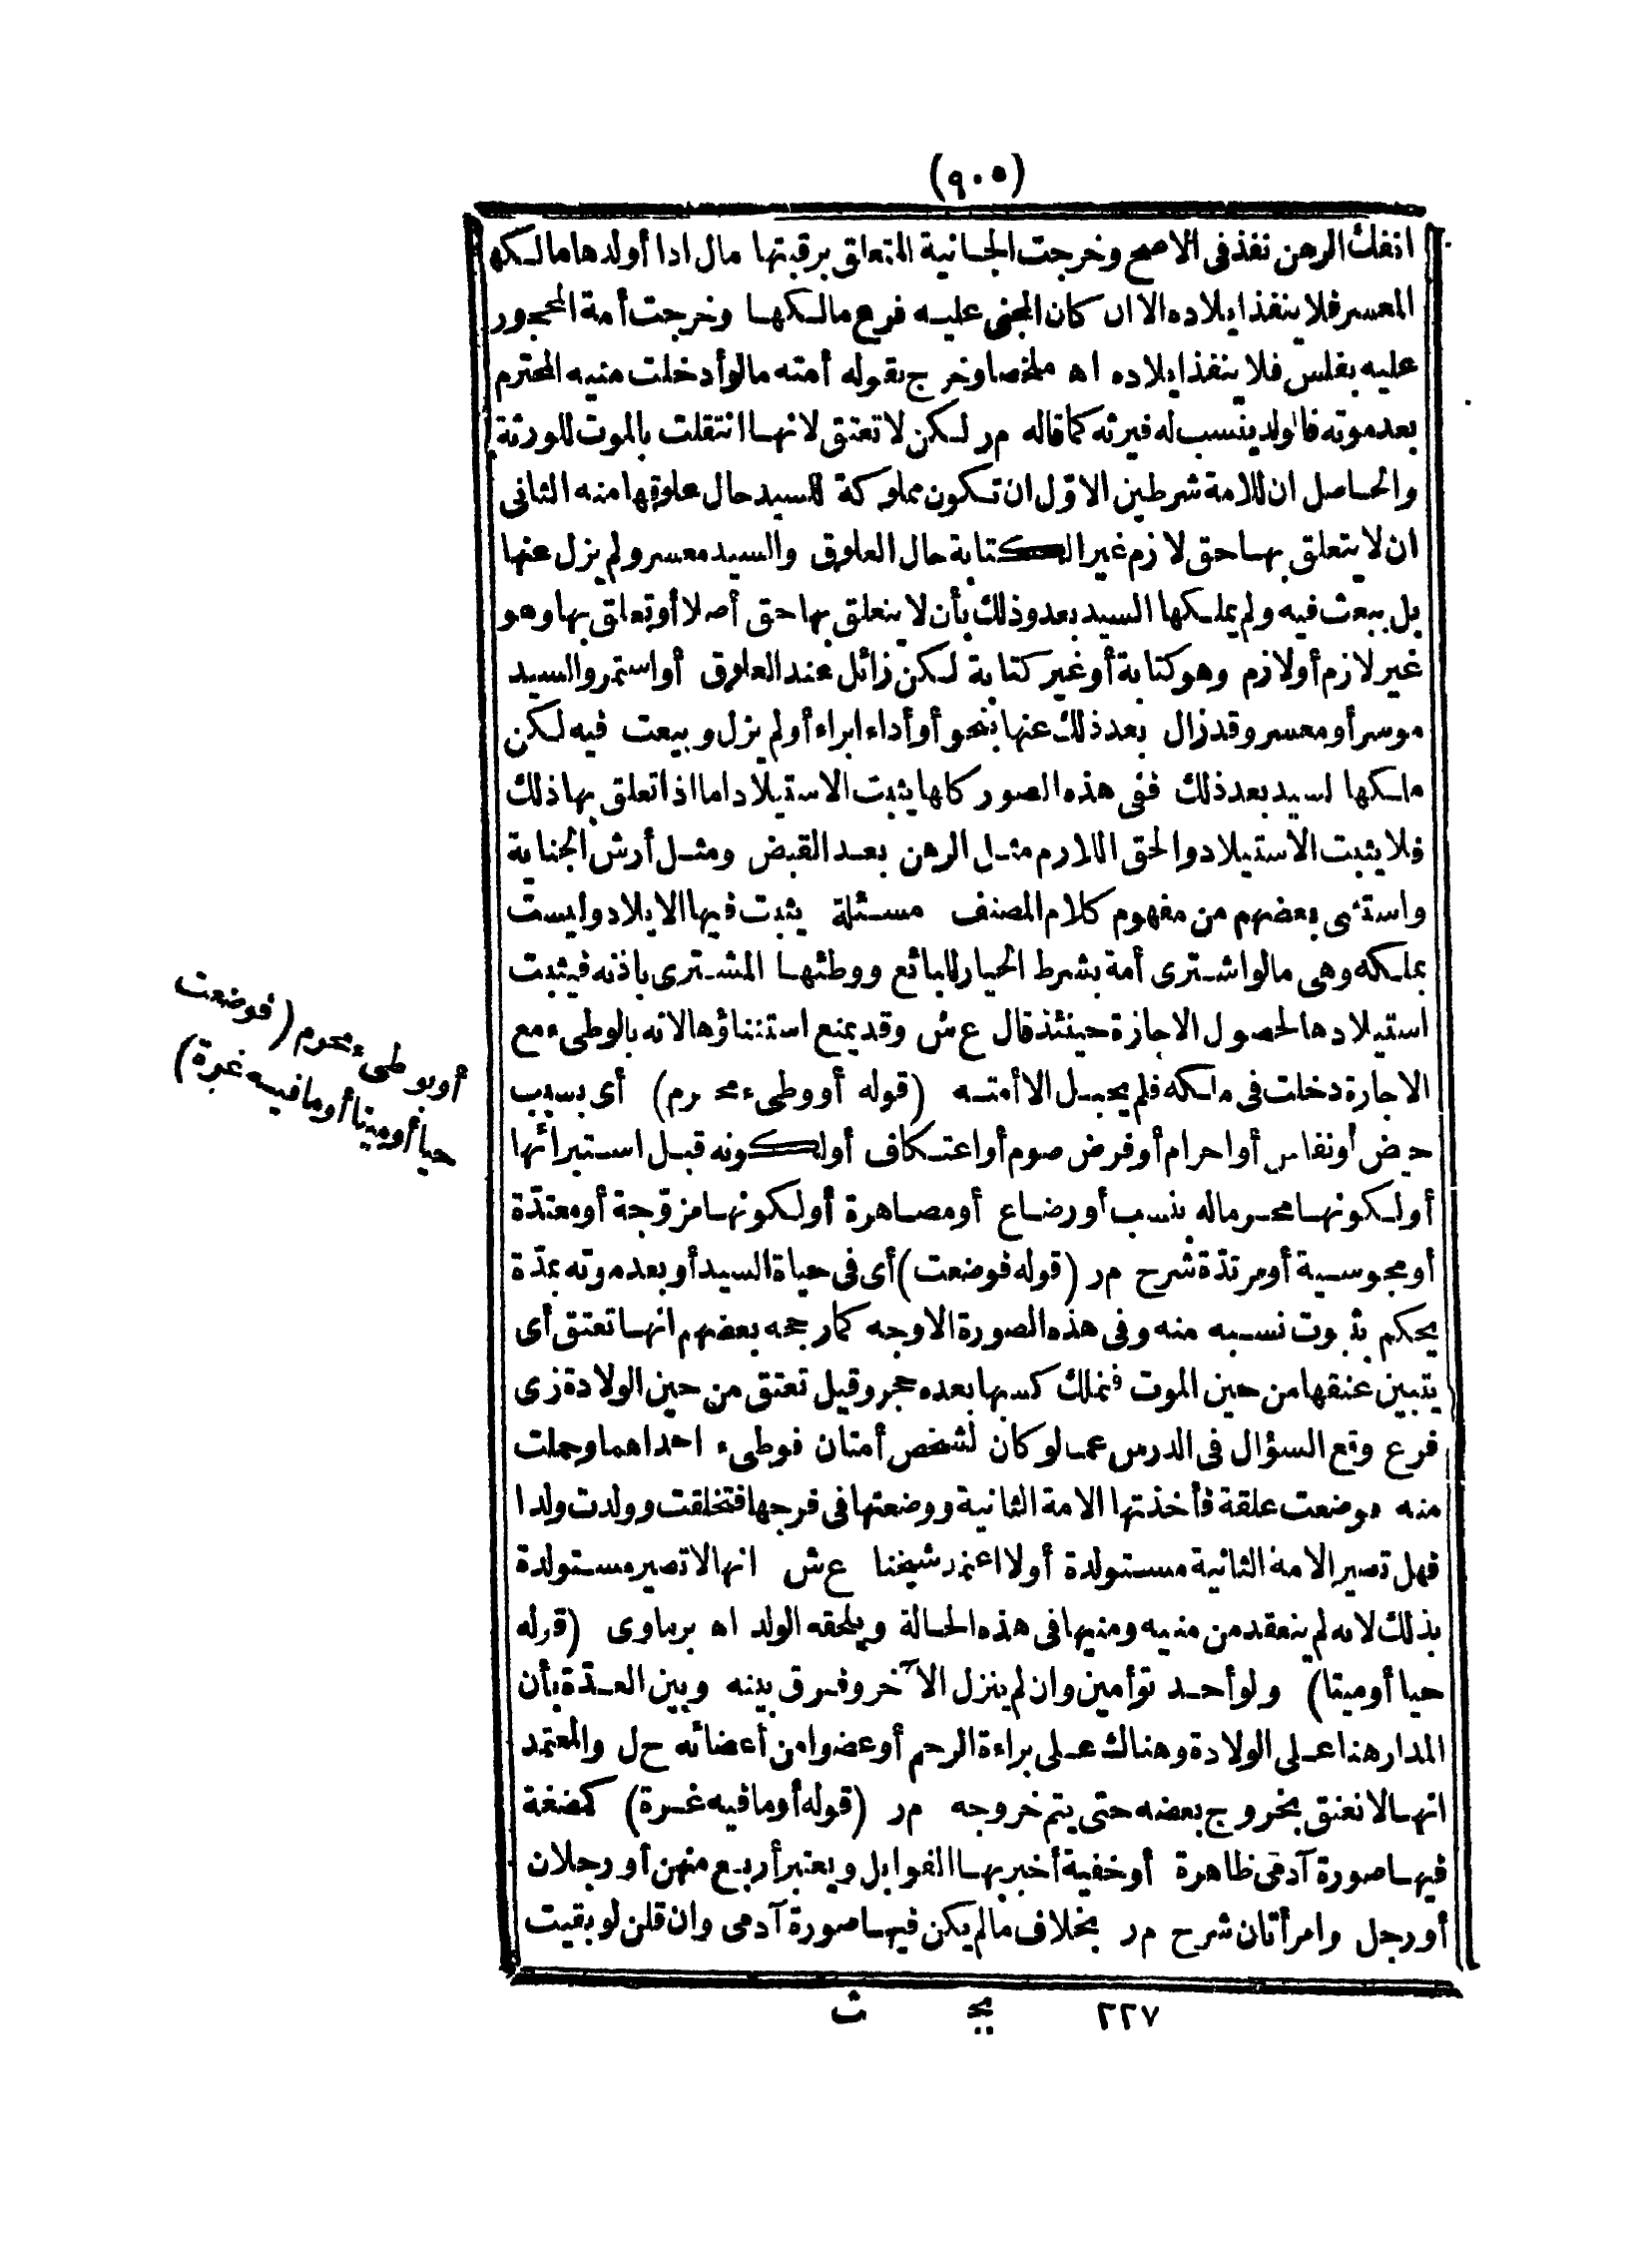 (٩٠٥)
انفك الرهن نفذ في الاصح وخرجت الجانية المتعلق برقبتها مال اذا أولدها مالكها
المعسر فلا ينفذ ايلاده الا ان كان المجنى عليه فرع مالكها وخرجت أمة المحجور
عليه بفلس فلا ينفذ ايلاده اه ملخصا وخرج بقوله أمته مالو أدخلت منيه المحترم
بعد موته فالولد ينسب له فيرثه كما قاله م ر لكن لا تعتق لانها انتقلت بالموت للورثة
والحاصل ان للامة شرطين الاوّل ان تكون مملوكة للسيد حال علوقها منه الثانى
ان لا يتعلق بها حق لازم غير الكتابة حال العلوق والسيد معسر ولم يزل عنها
بل بيعت فيه ولم يملكها السيد بعد وذلك بأن لا يتعلق بها حق أصلا أو تعلق بها وهو
غير لازم أو لازم وهو كتابة أو غير كتابة لكن زائل عند العلوق أو استمر والسيد
موسر أو معسر وقد زال بعد ذلك عنها بنحو أو أداء ابراء أو لم يزل وبيعت فيه لكن
ملكها لسيد بعد ذلك ففى هذه الصور كلها يثبت الاستيلاد اما اذا تعلق بها ذلك
فلا يثبت الاستيلاد والحق اللازم مثل الرهن بعد القبض ومثل أرش الجناية
واستثنى بعضهم من مفهوم كلام المصنف مسئلة يثبت فيها الايلاد وليست
بملكه وهى مالو اشترى أمة بشرط الخيار للبائع ووطئها المشترى باذنه فيثبت
استيلادها لحصول الاجازة حينئذ قال ع ش وقد يمنع استثناؤها لانه بالوطىء مع
الاجازة دخلت فى ملكه فلم يحبل الا أمته (قوله أو وطىء محرم) أى بسبب
حيض أو نفاس أو احرام أو فرض صوم أو اعتكاف أو لكونه قبل استبرائها
أو لكونها محرما له بنسب أو رضاع أو مصاهرة أو لكونها مزوّجة أو معتدّة
أو مجوسية أو مرتدّة شرح م ر (قوله فوضعت) أى فى حياة السيد أو بعد موته بمدّة
يحكم بثبوت نسبه منه وفى هذه الصورة الاوجه كما رجحه بعضهم انها تعتق أى
يتبين عتقها من حين الموت فتملك كسبها بعده حجر وقيل تعتق من حين الولادة زى
فرع وقع السؤال فى الدرس عمالو كان لشخص أمتان فوطىء احداهما وحملت
منه فوضعت علقة فأخذتها الامة الثانية ووضعتها فى فرجها فتخلقت وولدت ولدا
فهل تصير الامة الثانية مستولدة أولا اعتمد شيخنا ع ش انها لا تصير مستولدة
بذلك لانه لم ينعقد من منيه ومنيها فى هذه الحالة ويلحقه الولد اه برماوى (قوله
حيا أو ميتا) ولو أحد توأمين وان لم ينزل الآخر وفرق بينه وبين العدّة بأن
المدار هنا على الولادة وهناك على براءة الرحم أو عضوا من أعضائه ح ل والمعتمد
انها لا تعتق بخروج بعضه حتى يتم خروجه م ر (قوله أو ما فيه غرة) كمضغة
فيها صورة آدمى ظاهرة أو خفية أخبر بها القوابل ويعتبر أربع منهن أو رجلان
أو رجل وامرأتان شرح م ر بخلاف مالم يكن فيها صورة آدمى وان قلن لو بقيت
أو بوطىء محرم (فوضعت
حيا أو ميتا أو ما فيه غرة)
٢٢٧ يج ث